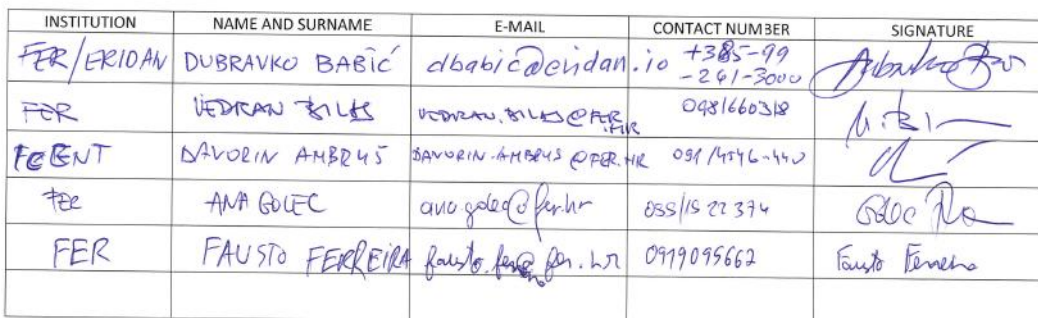 INSTITUTION NAME AND SURNAME E-MAIL CONTACT NUMBER SIGNATURE
FER/ERIDAN DUBRAVKO BABIĆ dbabic@eridan.io +385-99
-261-3000
FER VEDRAN BILAS VEDRAN.BILAS@FER
.HR 098/660318
DAVORIN AMBRUŠ DAVORIN.AMBRUS@FER.HR 091/4546-440
FER ANA GOLEC ana.golec@fer.hr 095/15 22 374 Golec
FER FAUSTO FERREIRA 0919095662 Fausto Ferreira